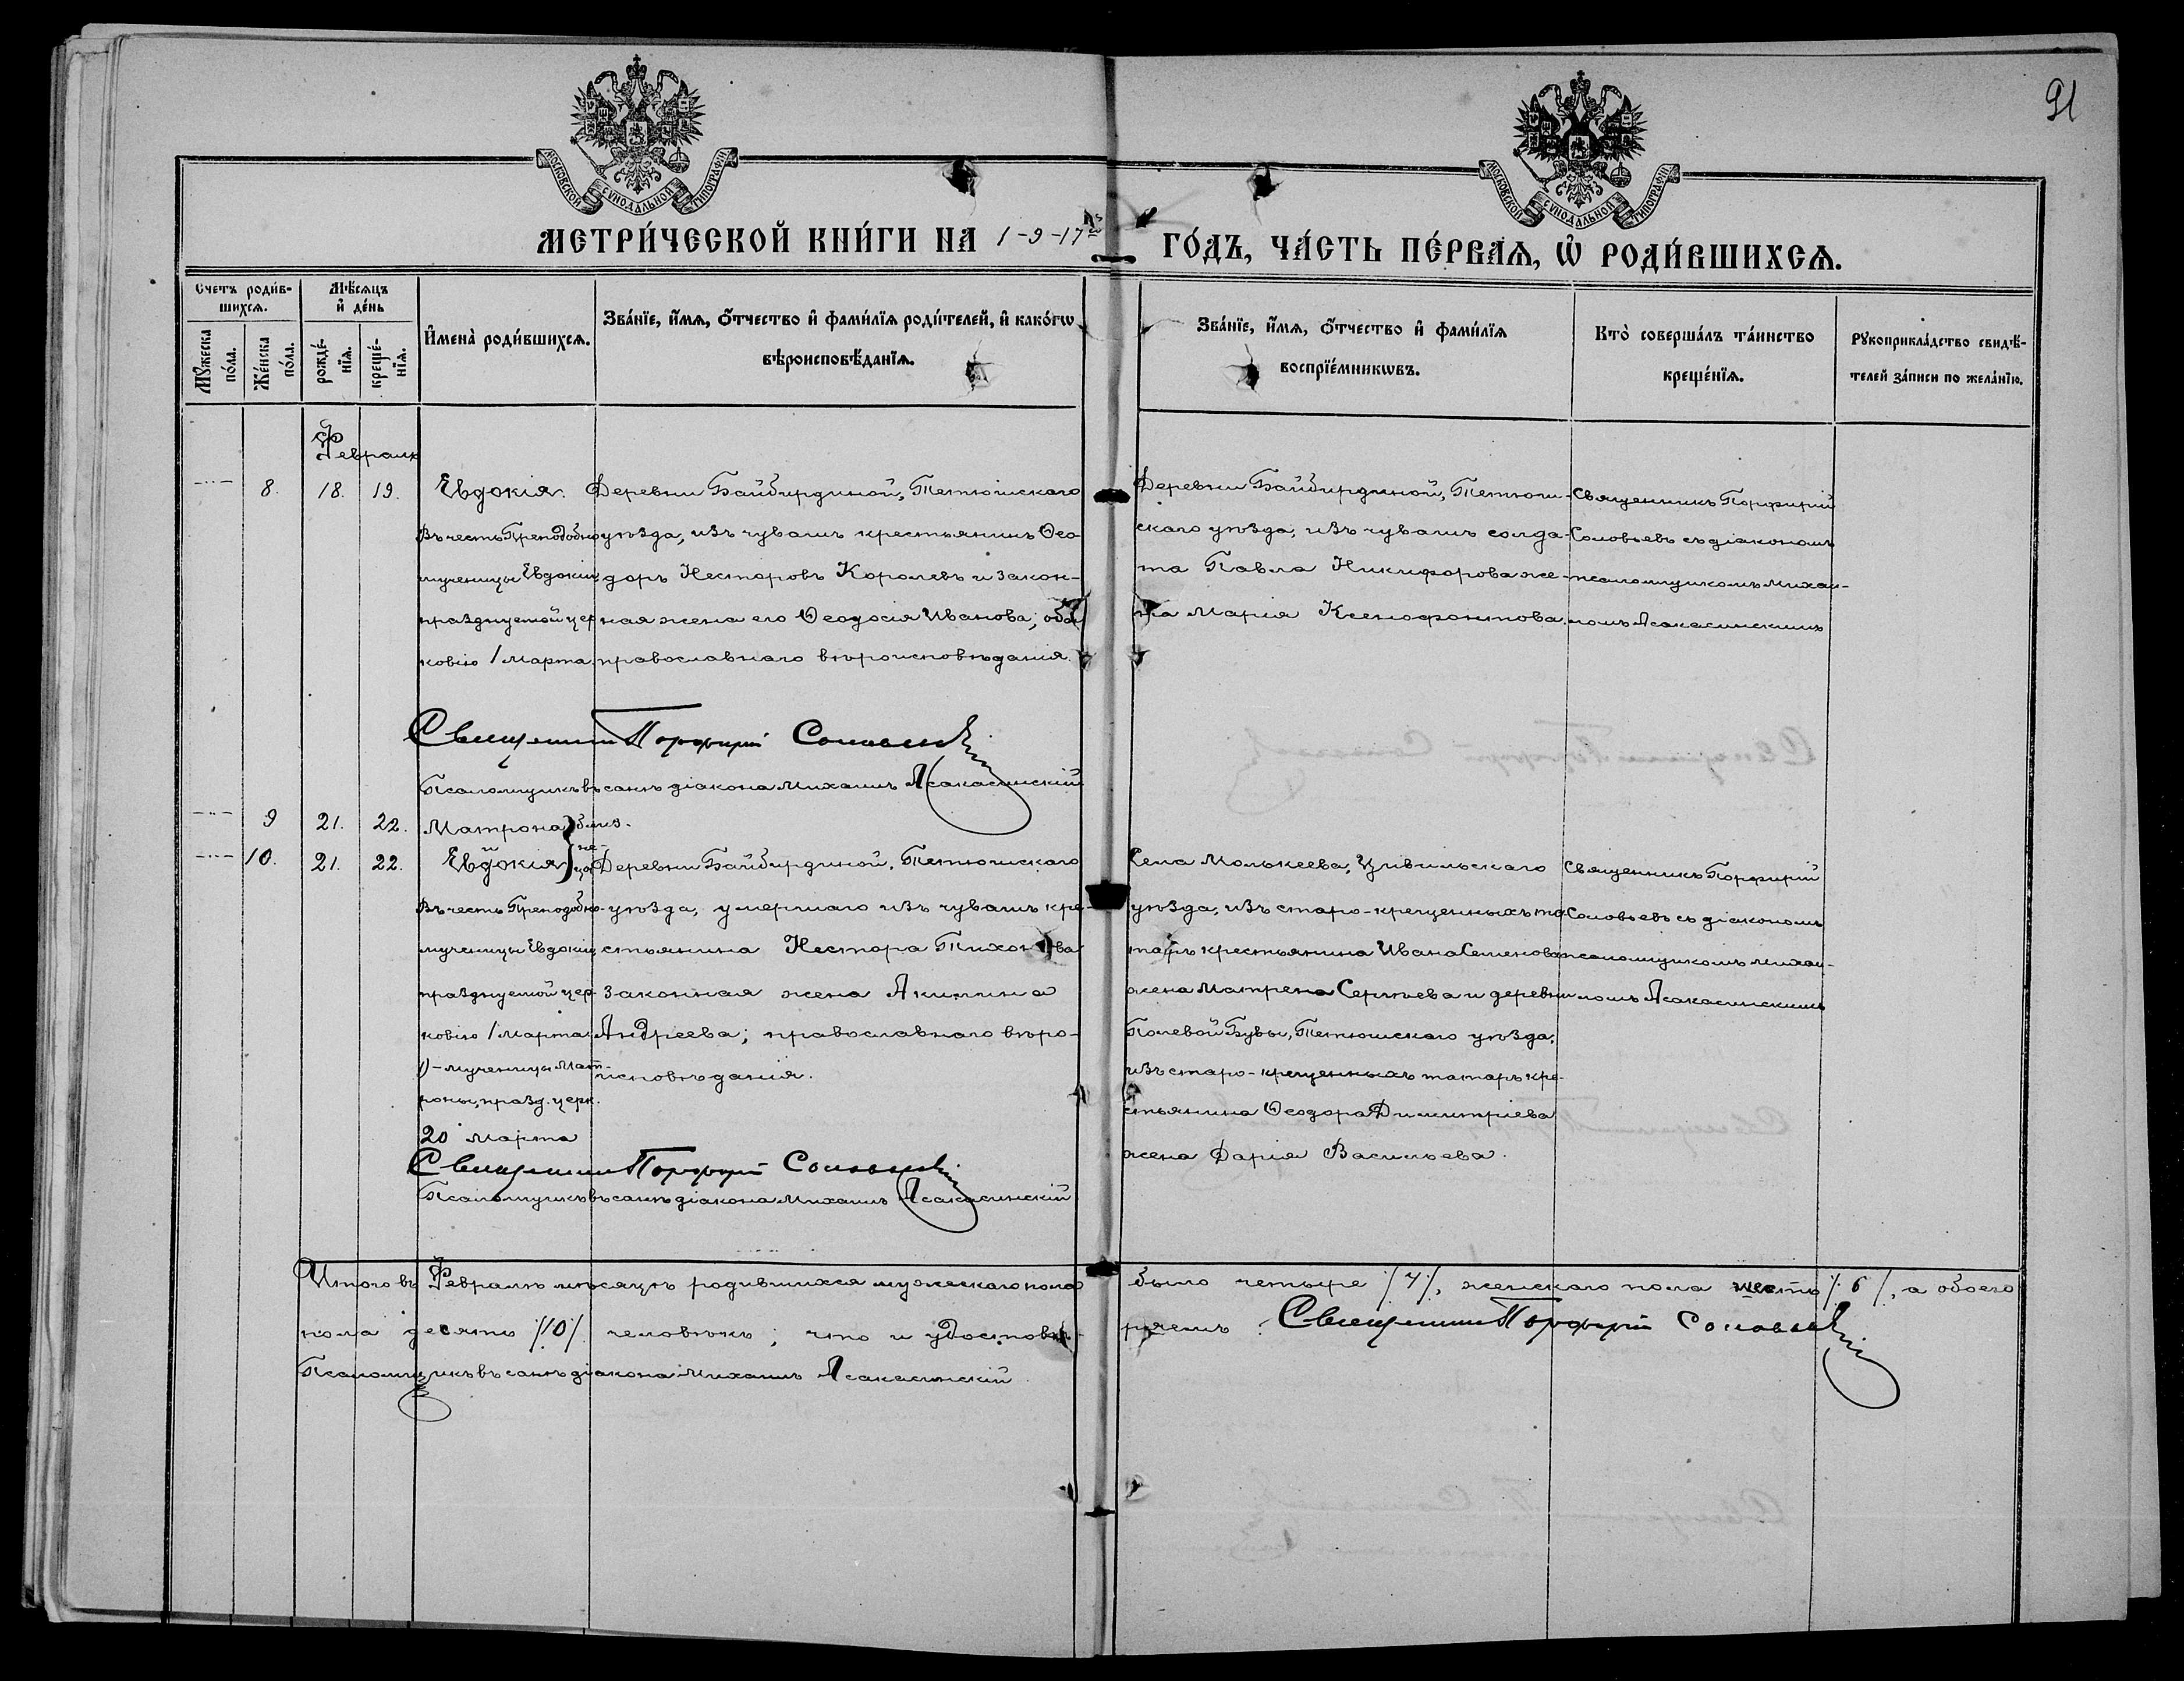 91
МОСКОВСКОЙ СУНОДАЛЬНОЙ ТИПОГРАФІИ
МОСКОВСКОЙ СУНОДАЛЬНОЙ ТИПОГРАФІИ
МЕТРИ́ЧЕСКОЙ КНИ́ГИ НА 1-9-17й ГО́ДЪ, ЧА́СТЬ ПЕ́РВАѦ, Ѡ҆ РОДИ́ВШИХСѦ.
Счетъ роди́в-
шихсѧ.
Мѣ́сѧцъ
и҆ де́нь
Мꙋ́жеска
по́ла.
Же́нска
по́ла.
рожде́-
нїѧ.
креще́-
нїѧ.
И҆мена̀ роди́вшихсѧ.
Зва́нїе, и҆́мѧ, ѻ҆́тчество и҆ фамі́лїѧ роди́телей, и҆ како́гѡ
вѣроисповѣ́данїѧ.
Зва́нїе, и҆́мѧ, ѻ҆́тчество и҆ фамі́лїѧ
воспрїе́мникѡвъ.
Кто̀ соверша́лъ та́инство
креще́нїѧ.
Рꙋкоприкла́дство свидѣ́-
телей за́писи по жела́нїю.
Февраль
8. 18. 19. Евдокія.
Въ честь Преподобно
мученицы Евдокіи,
празднуемой цер
ковію 1 Марта.
Деревни Байбирдиной, Тетюшскаго
уѣзда, изъ чувашъ крестьянинъ Ѳео-
доръ Несторовъ Королевъ и закон-
ная жена его Ѳеодосія Иванова; оба
православнаго вѣроисповѣданія.
Деревни Байбирдиной, Тетюш-
скаго уѣзда, изъ чувашъ солда-
та Павла Никифорова же-
на Марія Ксенофонтова.
Священникъ Порфирій
Соловьевъ съ діакономъ
псаломщикомъ Михаи-
ломъ Асакасинскимъ
Священникъ Порфирій Соловьевъ
Псаломщикъ въ санѣ діакона Михаилъ Асакасинскій
9 21. 22. Матрона } близ-
и не-
10. 21. 22. Евдокія } цы
Въ честь Преподобно-
мученицы Евдокіи,
празднуемой цер-
ковію 1 Марта и
1) - мученицы Мат-
роны, празд. церк.
20 Марта
Деревни Байбирдиной, Тетюшскаго
уѣзда, умершаго изъ чувашъ кре-
стьянина Нестора Тихонова
законная жена Акилина
Андреева; православнаго вѣро-
исповѣданія.
Села Молькеева, Цивильскаго
уѣзда, изъ старо-крещенныхъ та
таръ крестьянина Ивана Семенова
жена Матрена Сергѣева и деревни
Полевой Бувы, Тетюшскаго уѣзда,
изъ старо-крещенныхъ татаръ кре-
стьянина Ѳеодора Димитріева
жена Дарія Васильева.
Священникъ Порфирій
Соловьевъ съ діакономъ
псаломщикомъ Михаи-
ломъ Асакасинскимъ
Священникъ Порфирій Соловьевъ
Псаломщикъ въ санѣ діакона Михаилъ Асакасинскій
Итого въ Февралѣ мѣсяцѣ родившихся мужескаго пола было четыре /4/, женскаго пола шесть /6/, а обоего
пола десять /10/ человѣкъ; что и удостовѣряемъ: Священникъ Порфирій Соловьевъ
Псаломщикъ въ санѣ діакона Михаилъ Асакасинскій.